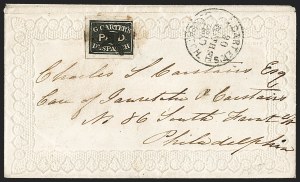 G. CARTER'S
PAID
DISPATCH
Charles S. Carstairs Esq
Care of Jauretche & Carstairs
No 86 South Front St
Philadelphia